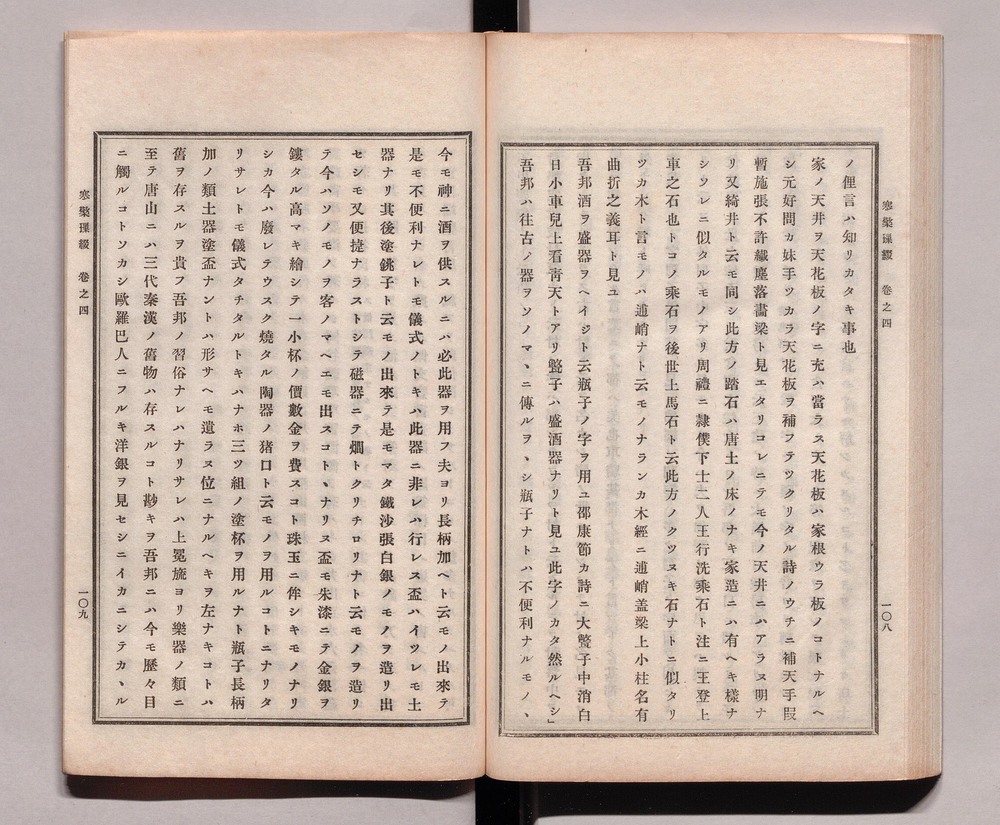 寒檠璅綴 卷之四
一〇八
ノ俚言ハ知リカタキ事也
家ノ天井ヲ天花板ノ字ニ充ハ當ラス天花板ハ家根ウラ板ノコトナルヘ
シ元好問カ妹手ツカラ天花板ヲ補フテツクリタル詩ノウチニ補天手叚
暫施張不許纎塵落畵梁ト見エタリコレニテモ今ノ天井ニハアラス明ナ
リ又綺井ト云モ同シ此方ノ踏石ハ唐土ノ床ノナキ家造ニハ有ヘキ樣ナ
シソレニ似タルモノアリ周禮ニ隷僕下士二人王行洗乘石ト注ニ王登上
車之石也トコノ乘石ヲ後世上馬石ト云此方ノクツヌキ石ナトニ似タリ
ツカ木ト言モノハ逋峭ナト云モノナランカ木經ニ逋峭盖梁上小柱名有
曲折之義耳ト見ユ
吾邦酒ヲ盛器ヲヘイジト云瓶子ノ字ヲ用ユ邵康節カ詩ニ大甖子中消白
日小車兒上看靑天トアリ甖子ハ盛酒器ナリト見ユ此字ノカタ然ルヘシ」
吾邦ハ往古ノ器ヲソノマヽニ傳ルヲヽシ瓶子ナトハ不便利ナルモノヽ
今モ神ニ酒ヲ供スルニハ必此器ヲ用フ夫ヨリ長柄加ヘト云モノ出來テ
是モ不便利ナレトモ儀式ノトキハ此器ニ非レハ行レス盃ハイツレモ土
器ナリ其後塗銚子ト云モノ出來テ是モマタ鐵沙張白銀ノモノヲ造リ出
セシモ又便捷ナラストシテ磁器ニテ燗トクリチロリナト云モノヲ造リ
テ今ハソノモノヲ客ノマヘエモ出スコトヽナリヌ盃モ朱漆ニテ金銀ヲ
鏤タル高マキ繪シテ一小杯ノ價數金ヲ費スコト珠玉ニ侔シキモノナリ
シカ今ハ廢レテウスク燒タル陶器ノ猪口ト云モノヲ用ルコトニナリタ
リサレトモ儀式タチタルトキハナホ三ツ組ノ塗杯ヲ用ルナト瓶子長柄
加ノ類土器塗盃ナントハ形サヘモ遺ラヌ位ニナルヘキヲ左ナキコトハ
舊ヲ存スルヲ貴フ吾邦ノ習俗ナレハナリサレハ上冕旒ヨリ樂器ノ類ニ
至テ唐山ニハ三代秦漢ノ舊物ハ存スルコト尠キヲ吾邦ニハ今モ歷々目
ニ觸ルコトソカシ歐羅巴人ニフルキ洋銀ヲ見セシニイカニシテカヽル
寒檠璅綴 卷之四
一〇九